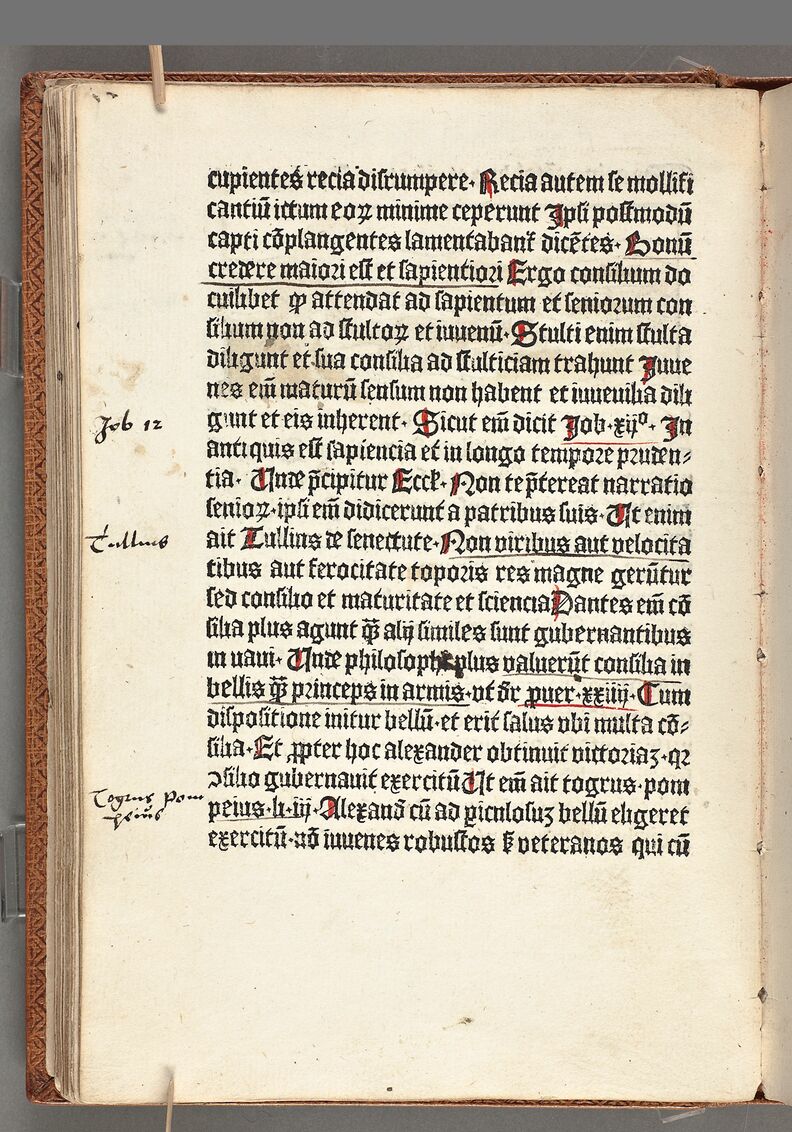 cupientes recia disrumpere· Recia autem se mollifi
cantiū ictum eoꝝ minime ceperunt Ipsi postmodū
capti cōplangentes lamentabant᷑ dicētes· Bonū
credere maiori est et sapientiori Ergo consilium do
cuilibet ꝙ attendat ad sapientum et seniorum con
silium non ad stultoꝝ et iuuenū· Stulti enim stulta
diligunt et sua consilia ad stulticiam trahunt Iuue
nes em̄ maturū sensum non habent et iuuenilia dili
gunt et eis inherent· Sicut em̄ dicit Job·xijº· In
Job 12
antiquis est sapiencia et in longo tempore pruden⸗
tia· Unde p̄cipitur Eccl̄· Non te p̄tereat narratio
senioꝝ·ipsi em̄ didicerunt a patribus suis· Ut enim
ait Tullius de senectute· Non viribus aut velocita
Tullius
tibus aut ferocitate toporis res magne gerūtur
sed consilio et maturitate et sciencia Dantes em̄ cō
silia plus agunt ꝙ̄ alij similes sunt gubernantibus
in naui· Unde philosoph plus valuerūt consilia in
bellis ꝙ̄ princeps in armis·vt dr̄ puer·xxiiij·Cum
dispositione initur bellū·et erit salus vbi multa cō⸗
silia·Et ꝓpter hoc alexander obtinuit victoriaꝫ·qꝛ
ꝯsilio gubernauit exercitū Ut em̄ ait togrus·pom
Togrus Pom
peius
peius·li·iij·Alexand̄ cū ad ꝑiculosuꝫ bellū eligeret
exercitū·nō iuuenes robustos sꝫ veteranos qui cū